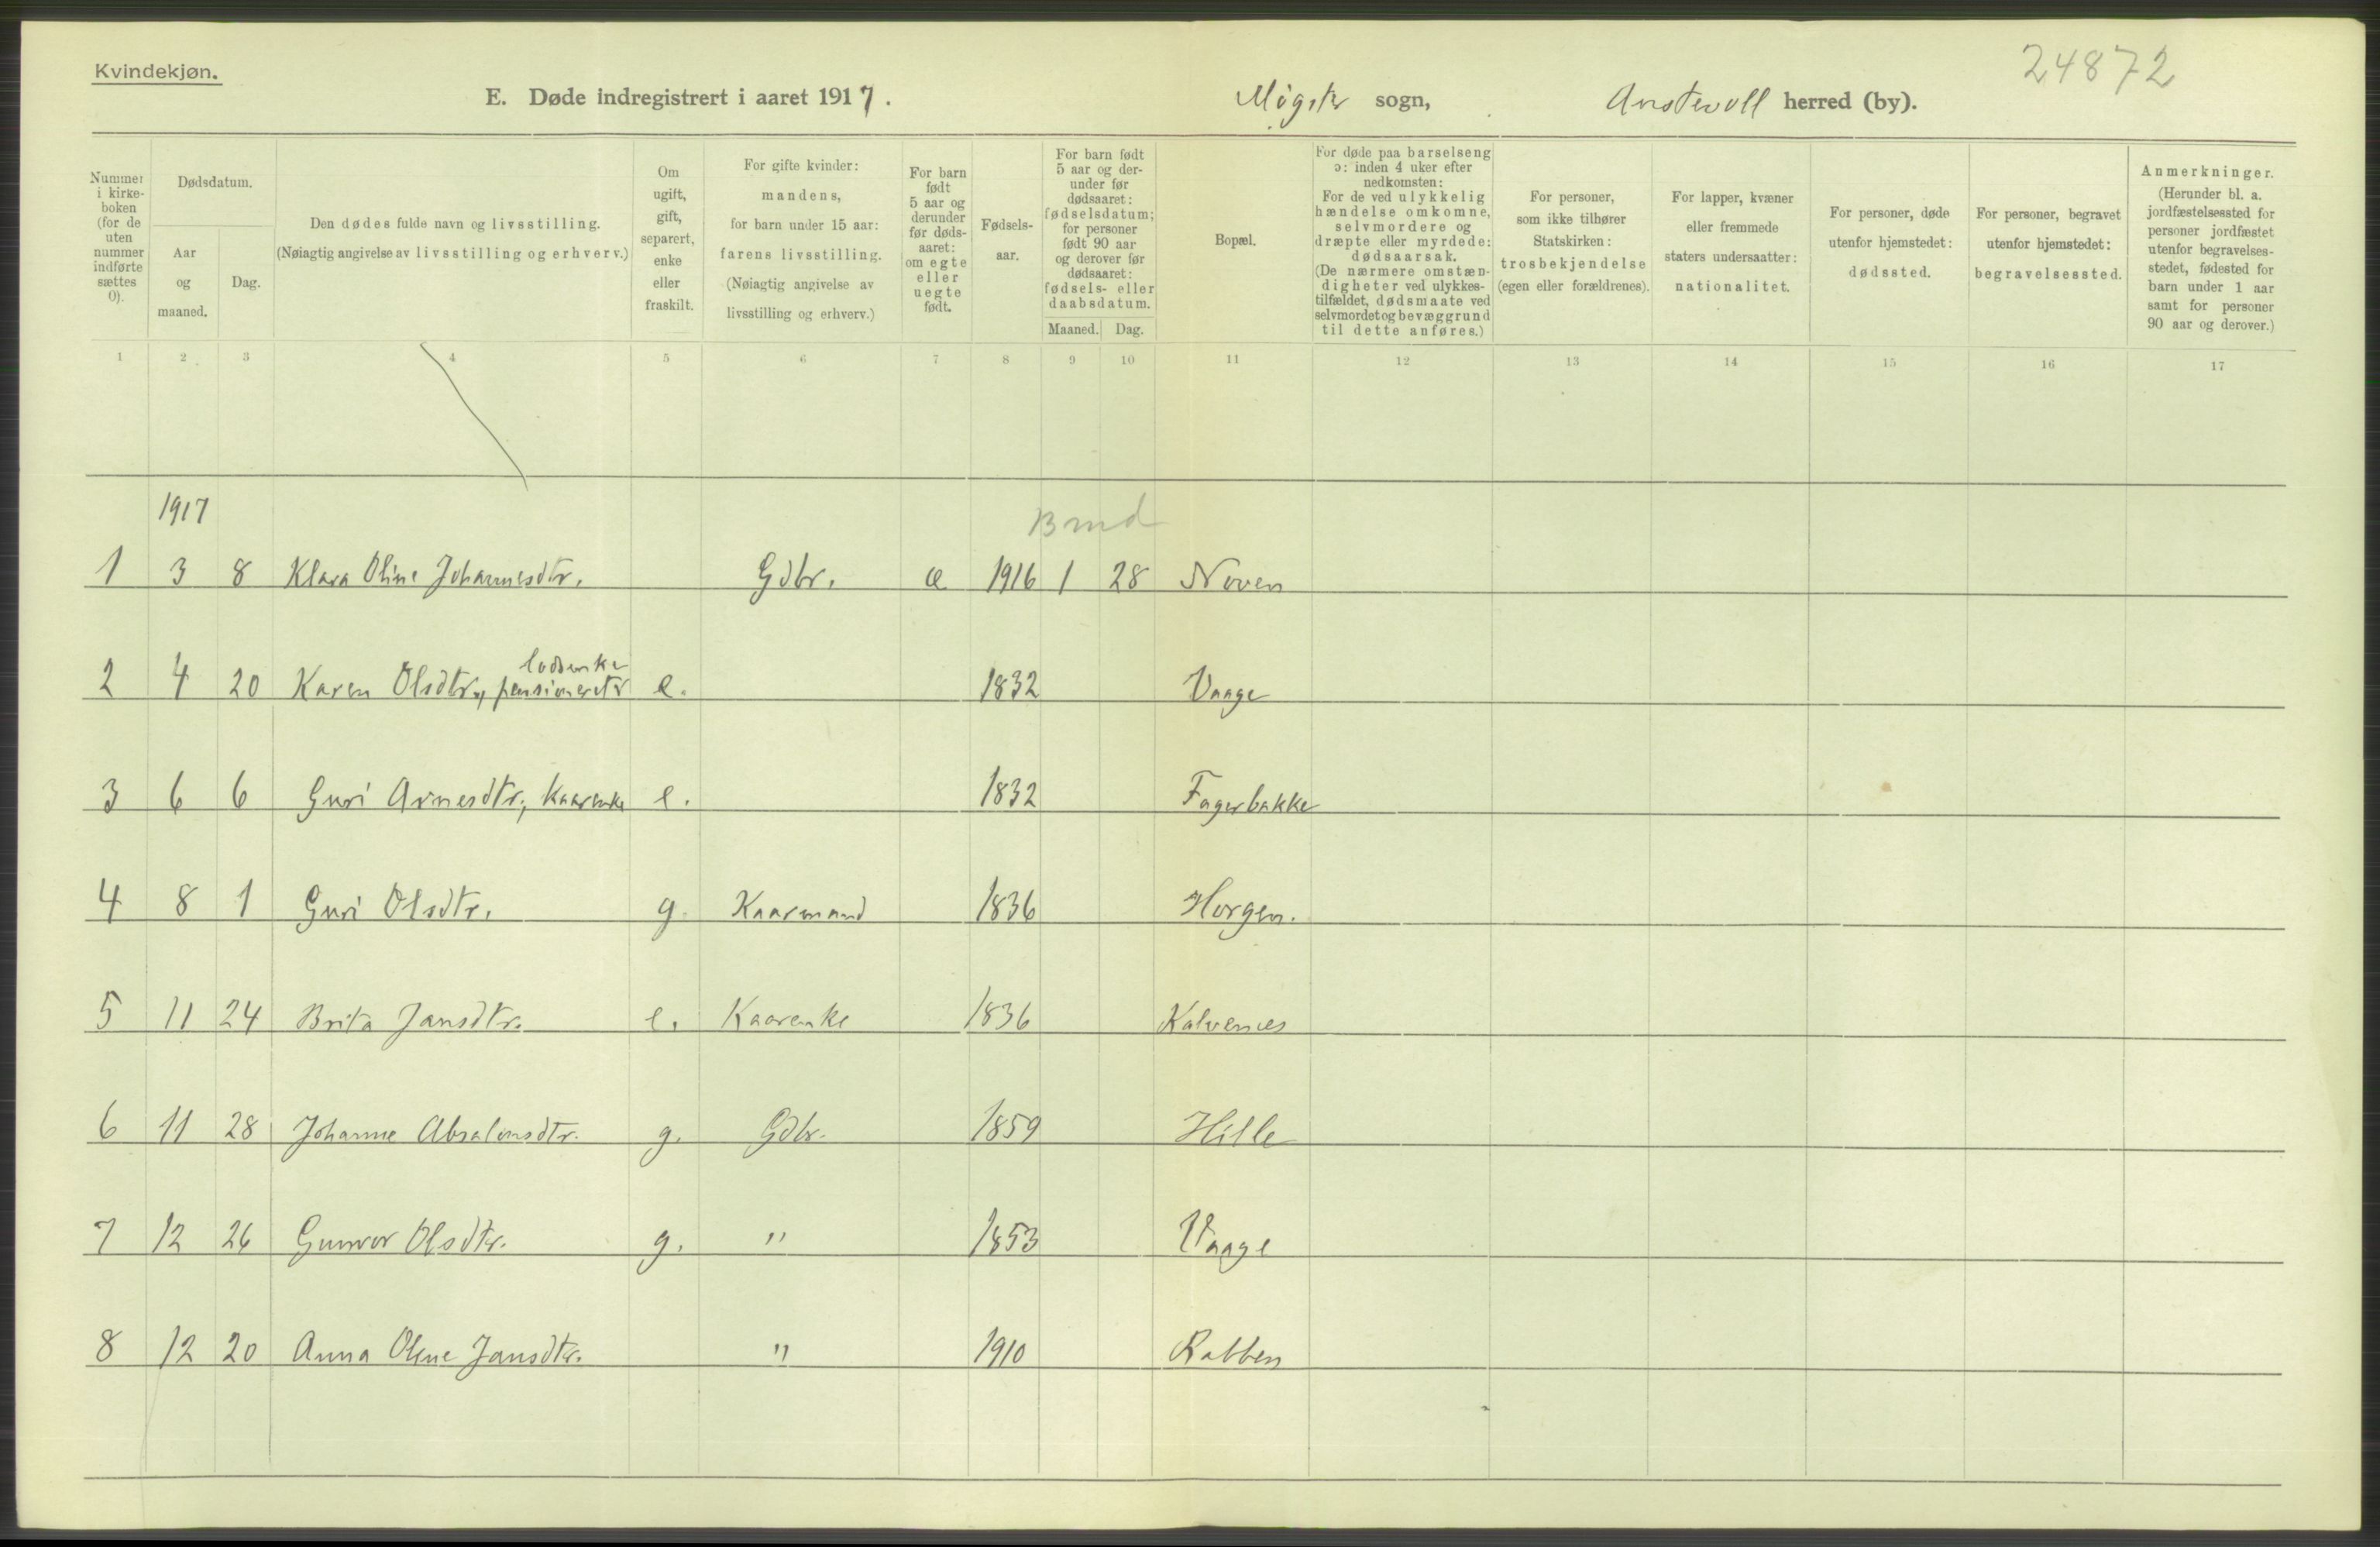 Kvindekjøn.
24872
E. Døde indregistrert i aaret 1917. Møgster sogn, Austevoll herred (by).
Nummer i kirkeboken (for de uten nummer indførte sættes 0).
Dødsdatum.
Aar og maaned.
Dag.
Den dødes fulde navn og livsstilling.
(Nøiagtig angivelse av livsstilling og erhverv.)
Om ugift, gift, separert, enke eller fraskilt.
For gifte kvinder: mandens, for barn under 15 aar: farens livsstilling. (Nøiagtig angivelse av livsstilling og erhverv.)
For barn født 5 aar og derunder før dødsaaret: om egte eller uegte født.
Fødselsaar.
For barn født 5 aar og derunder før dødsaaret: fødselsdatum; for personer født 90 aar og derover før dødsaaret: fødsels- eller daabsdatum.
Maaned.
Dag.
Bopæl.
For døde paa barselseng ɔ: inden 4 uker efter nedkomsten: For de ved ulykkelig hændelse omkomne, selvmordere og dræpte eller myrdede: dødsaarsak. (De nærmere omstændigheter ved ulykkestilfældet, dødsmaate ved selvmordet og bevæggrund til dette anføres.)
For personer, som ikke tilhører Statskirken: trosbekjendelse (egen eller forældrenes).
For lapper, kvæner eller fremmede staters undersaatter: nationalitet.
For personer, døde utenfor hjemstedet: dødssted.
For personer, begravet utenfor hjemstedet: begravelsessted.
Anmerkninger. (Herunder bl. a. jordfæstelsessted for personer jordfæstet utenfor begravelsesstedet, fødested for barn under 1 aar samt for personer 90 aar og derover.)
1 2 3 4 5 6 7 8 9 10 11 12 13 14 15 16 17
1917
1 3 8 Klara Oline Johannesdtr. Gdbr. æ 1916 1 28 Noven
2 4 20 Karen Olsdtr., lodsenke pensioneret e. 1832 Vaage
3 6 6 Guri Arnesdtr., Kaarenke e. 1832 Fagerbakke
4 8 1 Guri Olsdtr. g. Kaarmand 1836 Horgen.
5 11 24 Brita Jansdtr. e. Kaarenke 1836 Kalvenes
6 11 28 Johanne Absalonsdtr. g. Gdbr. 1859 Hille
7 12 26 Gunvor Olsdtr. g. " 1853 Vaage
8 12 20 Anna Oline Jansdtr. " 1910 Rabben